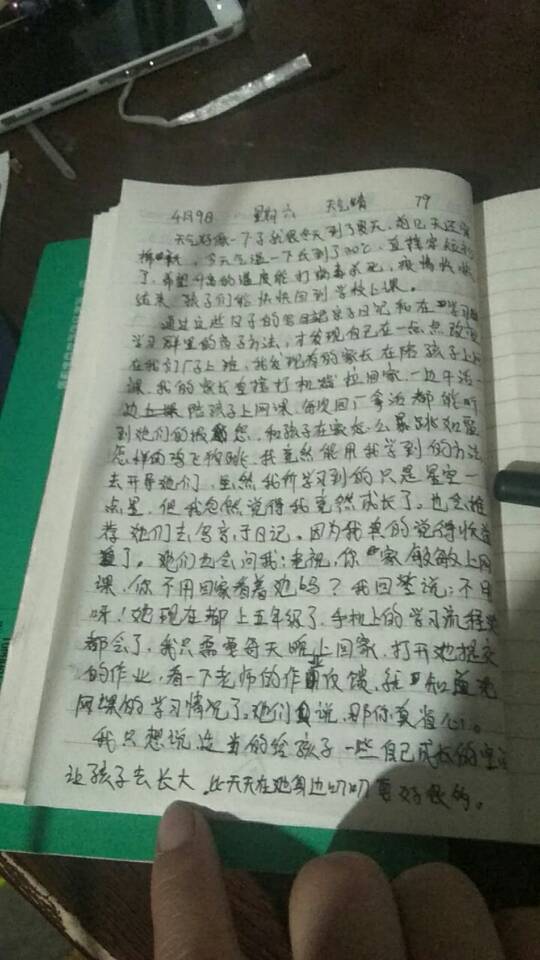 4月9日 星期六 天气晴 79
天气好像一下子从冬天到了夏天，前几天还穿
棉，今天气温一下长到了30℃，直接穿短袖
了，希望升高的温度能打病毒杀死，疫情快快
结束，孩子们能快快回到学校上课。
通过这些日子的写日记亲子日记和在学习
学习群里的亲子方法，才发现自己在一点点改变
在我们厂子上班，我发现有的家长在陪孩子上网
课，我的家长直接打机器拉回家，一边干活一
边陪孩子上网课，每次回厂拿活都能听
到她们的报怨，和孩子在家怎么暴跳如雷
怎样的鸡飞狗跳，我竟然能用我学到的方法
去开导她们，虽然我所学习到的只是星空一
点星，但我忽然觉得我竟然成长了，也会推
荐她们去写亲子日记。因为我真的觉得快
了。她们也会问我：老祝，你家敏敏上网
课，你不用回家看着她吗？我回答说：不用
呀！她现在都上五年级了，手机上的学习流程她
都会了，我只需要每天晚上回家，打开她提交
的作业，看一下老师的作业反馈，就知道她
网课的学习情况了，她们说，那你真省心。
我只想说适当的给孩子一些自己成长的空间
让孩子去长大，比天天在她身边叨叨要好很的。